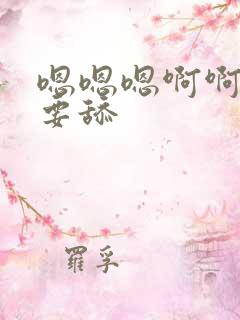 嗯嗯嗯啊啊
要舔
羅孚